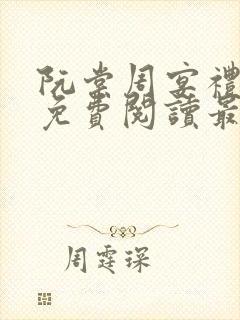 阮棠周宴禮
免費閱讀最
周霆琛